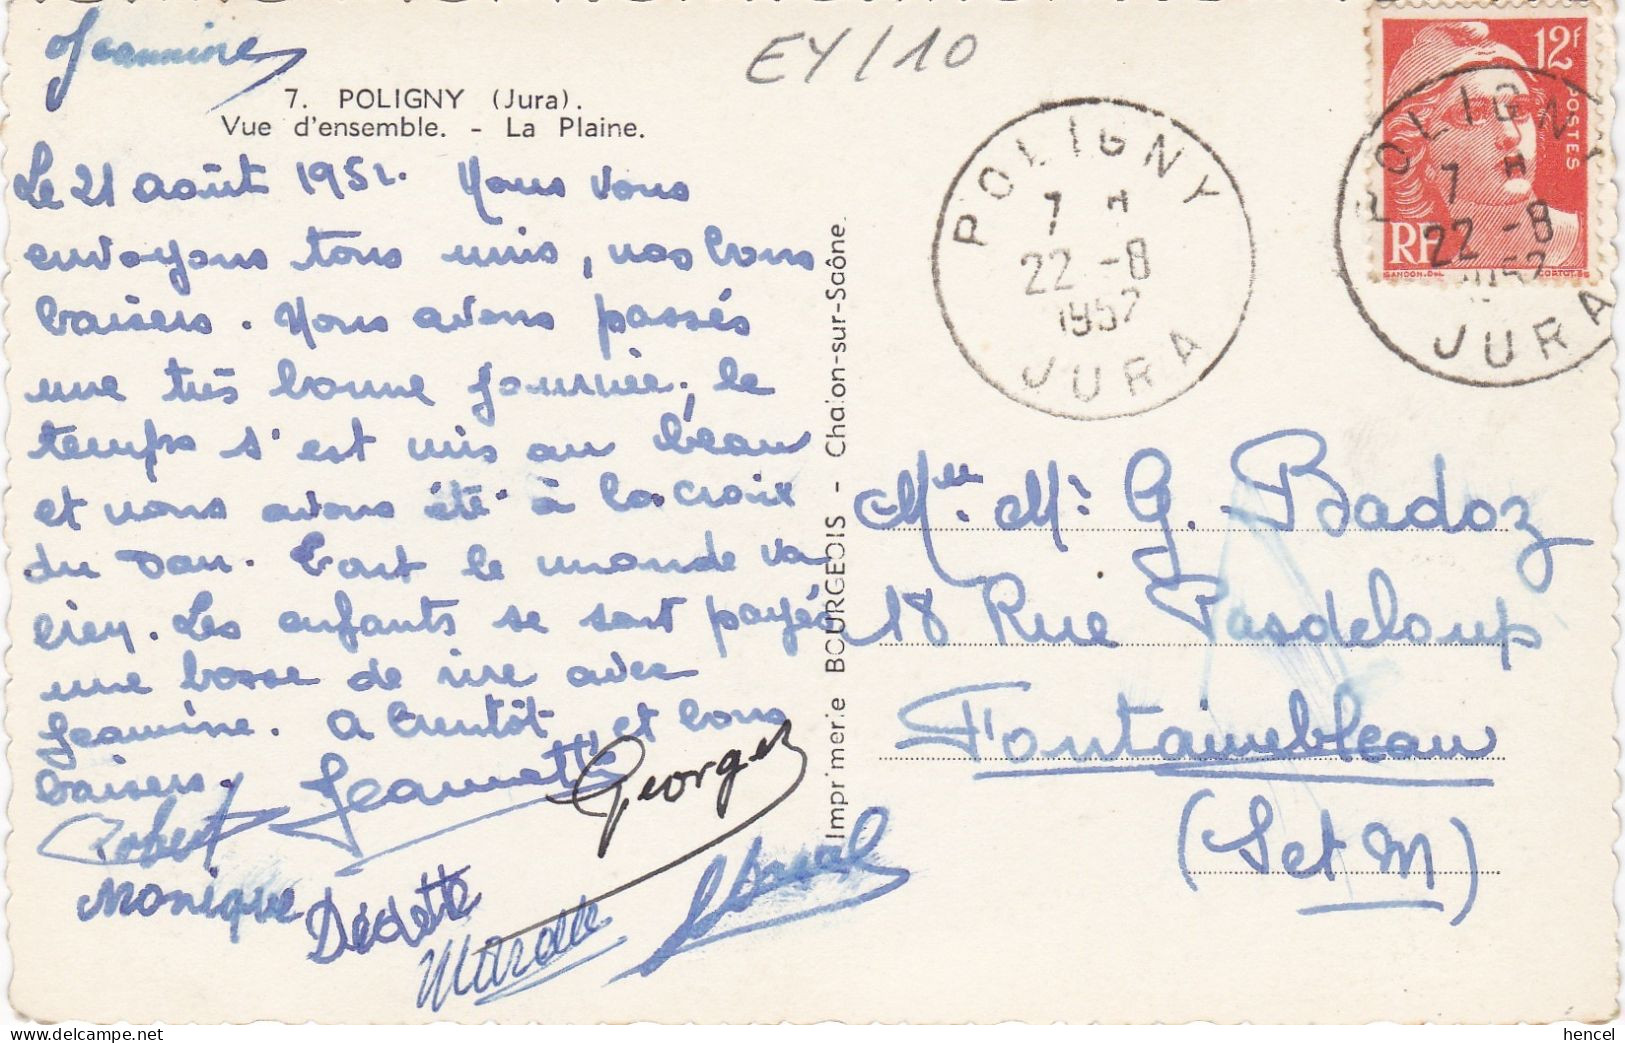 Jeannine
EY/10
7. POLIGNY (Jura).
Vue d'ensemble. - La Plaine.
Le 21 août 1952. Nous vous
envoyons tous unis, nos bons
baisers. Nous avons passés
une très bonne journée, le
temps s'est mis au beau
et nous avons été à la croix
du Dan. Tout le monde va
bien. Les enfants se sont payés
une bosse de rire avec
Jeannine. A bientôt, et bons
baisers.
Jeannette
Georges
Robert
Monique
Dédette
Imprimerie BOURGEOIS - Chalon-sur-Saône.
POLIGNY
7 H
22 -8
1952
JURA
12F
POSTES
RF
GANDON.DEL
CORTOT.SC
POLIGNY
7 H
22 -8
1952
JURA
Mme. Mr G. Badoz
18 Rue Pasdeloup
Fontainebleau
(S et M)
hencel